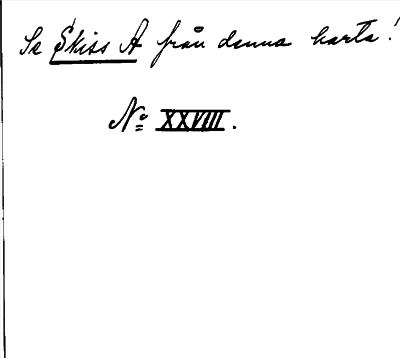 Se Skiss A från denna karta!
No XXVIII.